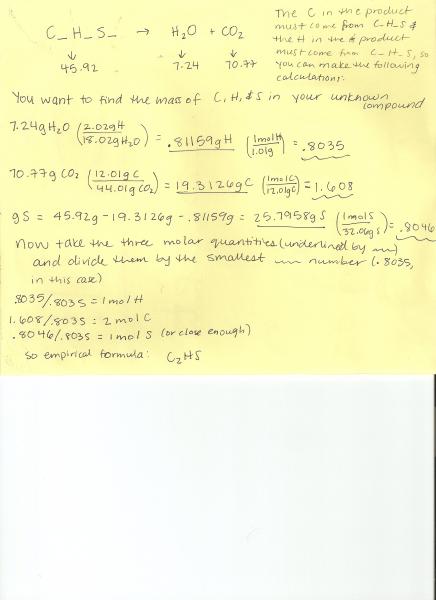 C_H_S_ → H₂O + CO₂
↓ ↓ ↓
45.92 7.24 70.77
The C in the product
must come from C_H_S &
the H in the product
must come from C_H_S, so
you can make the following
calculations:
You want to find the mass of C, H, & S in your unknown
compound
7.24g H₂O (2.02gH/18.02gH₂O) = .81159gH (1molH/1.01g) = .8035
70.77g CO₂ (12.01gC/44.01gCO₂) = 19.3126gC (1molC/12.01gC) = 1.608
gS = 45.92g - 19.3126g - .81159g = 25.7958gS (1molS/32.06gS) = .8046
Now take the three molar quantities (underlined by ~~)
and divide them by the smallest ~~ number (.8035,
in this case)
.8035/.8035 = 1 mol H
1.608/.8035 = 2 mol C
.8046/.8035 = 1 mol S (or close enough)
so empirical formula: C₂HS